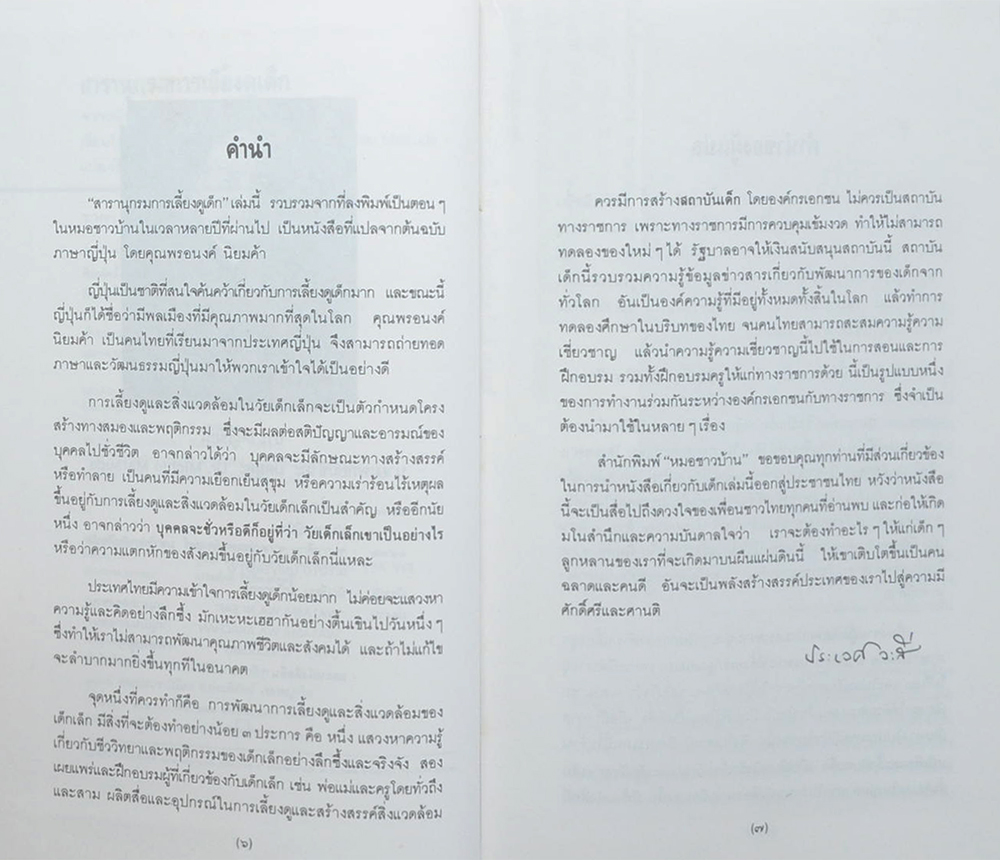 คำนำ
“สารานุกรมการเลี้ยงดูเด็ก” เล่มนี้ รวบรวมจากที่ลงพิมพ์เป็นตอน ๆ
ในหมอชาวบ้านในเวลาหลายปีที่ผ่านไป เป็นหนังสือที่แปลจากต้นฉบับ
ภาษาญี่ปุ่น โดยคุณพรอนงค์ นิยมค้า
ญี่ปุ่นเป็นชาติที่สนใจค้นคว้าเกี่ยวกับการเลี้ยงดูเด็กมาก และขณะนี้
ญี่ปุ่นก็ได้ชื่อว่ามีพลเมืองที่มีคุณภาพมากที่สุดในโลก คุณพรอนงค์
นิยมค้า เป็นคนไทยที่เรียนมาจากประเทศญี่ปุ่น จึงสามารถถ่ายทอด
ภาษาและวัฒนธรรมญี่ปุ่นมาให้พวกเราเข้าใจได้เป็นอย่างดี
การเลี้ยงดูและสิ่งแวดล้อมในวัยเด็กเล็กจะเป็นตัวกำหนดโครง
สร้างทางสมองและพฤติกรรม ซึ่งจะมีผลต่อสติปัญญาและอารมณ์ของ
บุคคลไปชั่วชีวิต อาจกล่าวได้ว่า บุคคลจะมีลักษณะทางสร้างสรรค์
หรือทำลาย เป็นคนที่มีความเยือกเย็นสุขุม หรือความเร่าร้อนไร้เหตุผล
ขึ้นอยู่กับการเลี้ยงดูและสิ่งแวดล้อมในวัยเด็กเล็กเป็นสำคัญ หรืออีกนัย
หนึ่ง อาจกล่าวว่า บุคคลจะชั่วหรือดีก็อยู่ที่ว่า วัยเด็กเล็กเขาเป็นอย่างไร
หรือว่าความแตกหักของสังคมขึ้นอยู่กับวัยเด็กเล็กนี่แหละ
ประเทศไทยมีความเข้าใจการเลี้ยงดูเด็กน้อยมาก ไม่ค่อยจะแสวงหา
ความรู้และคิดอย่างลึกซึ้ง มักเหะหะเฮฮากันอย่างตื้นเขินไปวันหนึ่ง ๆ
ซึ่งทำให้เราไม่สามารถพัฒนาคุณภาพชีวิตและสังคมได้ และถ้าไม่แก้ไข
จะลำบากมากยิ่งขึ้นทุกทีในอนาคต
จุดหนึ่งที่ควรทำก็คือ การพัฒนาการเลี้ยงดูและสิ่งแวดล้อมของ
เด็กเล็ก มีสิ่งที่จะต้องทำอย่างน้อย ๓ ประการ คือ หนึ่ง แสวงหาความรู้
เกี่ยวกับชีววิทยาและพฤติกรรมของเด็กเล็กอย่างลึกซึ้งและจริงจัง สอง
เผยแพร่และฝึกอบรมผู้ที่เกี่ยวข้องกับเด็กเล็ก เช่น พ่อแม่และครูโดยทั่วถึง
และสาม ผลิตสื่อและอุปกรณ์ในการเลี้ยงดูและสร้างสรรค์สิ่งแวดล้อม
(๖)
ควรมีการสร้างสถาบันเด็ก โดยองค์กรเอกชน ไม่ควรเป็นสถาบัน
ทางราชการ เพราะทางราชการมีการควบคุมเข้มงวด ทำให้ไม่สามารถ
ทดลองของใหม่ ๆ ได้ รัฐบาลอาจให้เงินสนับสนุนสถาบันนี้ สถาบัน
เด็กนี้รวบรวมความรู้ข้อมูลข่าวสารเกี่ยวกับพัฒนาการของเด็กจาก
ทั่วโลก อันเป็นองค์ความรู้ที่มีอยู่ทั้งหมดทั้งสิ้นในโลก แล้วทำการ
ทดลองศึกษาในบริบทของไทย จนคนไทยสามารถสะสมความรู้ความ
เชี่ยวชาญ แล้วนำความรู้ความเชี่ยวชาญนี้ไปใช้ในการสอนและการ
ฝึกอบรม รวมทั้งฝึกอบรมครูให้แก่ทางราชการด้วย นี้เป็นรูปแบบหนึ่ง
ของการทำงานร่วมกันระหว่างองค์กรเอกชนกับทางราชการ ซึ่งจำเป็น
ต้องนำมาใช้ในหลาย ๆ เรื่อง
สำนักพิมพ์ “หมอชาวบ้าน” ขอขอบคุณทุกท่านที่มีส่วนเกี่ยวข้อง
ในการนำหนังสือเกี่ยวกับเด็กเล่มนี้ออกสู่ประชาชนไทย หวังว่าหนังสือ
นี้จะเป็นสื่อไปถึงดวงใจของเพื่อนชาวไทยทุกคนที่อ่านพบ และก่อให้เกิด
มโนสำนึกและความบันดาลใจว่า เราจะต้องทำอะไร ๆ ให้แก่เด็ก ๆ
ลูกหลานของเราที่จะเกิดมาบนผืนแผ่นดินนี้ ให้เขาเติบโตขึ้นเป็นคน
ฉลาดและคนดี อันจะเป็นพลังสร้างสรรค์ประเทศของเราไปสู่ความมี
ศักดิ์ศรีและศานติ
ประเวศ วะสี
(๗)